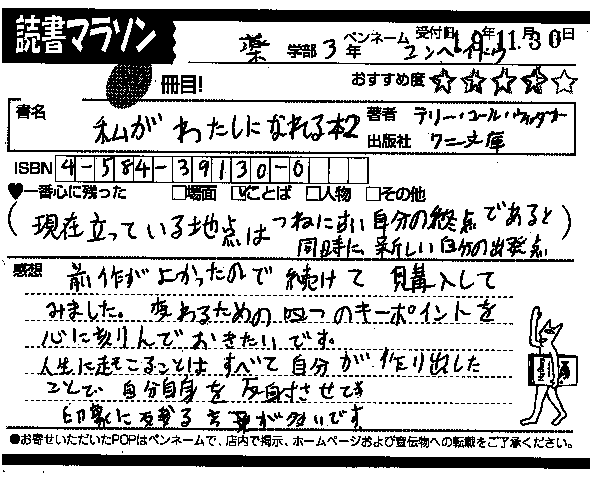 読書マラソン
冊目!
薬 学部 3 年 ペンネーム 受付日 19年11月30日
おすすめ度 ☆☆☆☆☆
書名 私が わたしになれる本2
著者 テリー・コール・ウィッタカー
出版社 ワニ文庫
ISBN 4-584-39130-0
♥一番心に残った □場面 ☑ことば □人物 □その他
(現在立っている地点は つねに古い自分の終点であると
同時に、新しい自分の出発点)
感想 前作がよかったので 続けて 購入して
みました。変わるための 四つのキーポイントを
心に刻んでおきたいです。
人生に起こることは すべて 自分が 作り出した
ことで、自分自身を 反射させてる
印象に残る言葉が多いです
●お寄せいただいたPOPはペンネームで、店内で掲示、ホームページおよび宣伝物への転載をご了承ください。